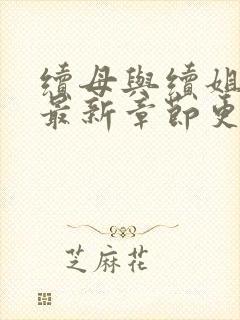 續母與續姐
最新章節更
芝麻花